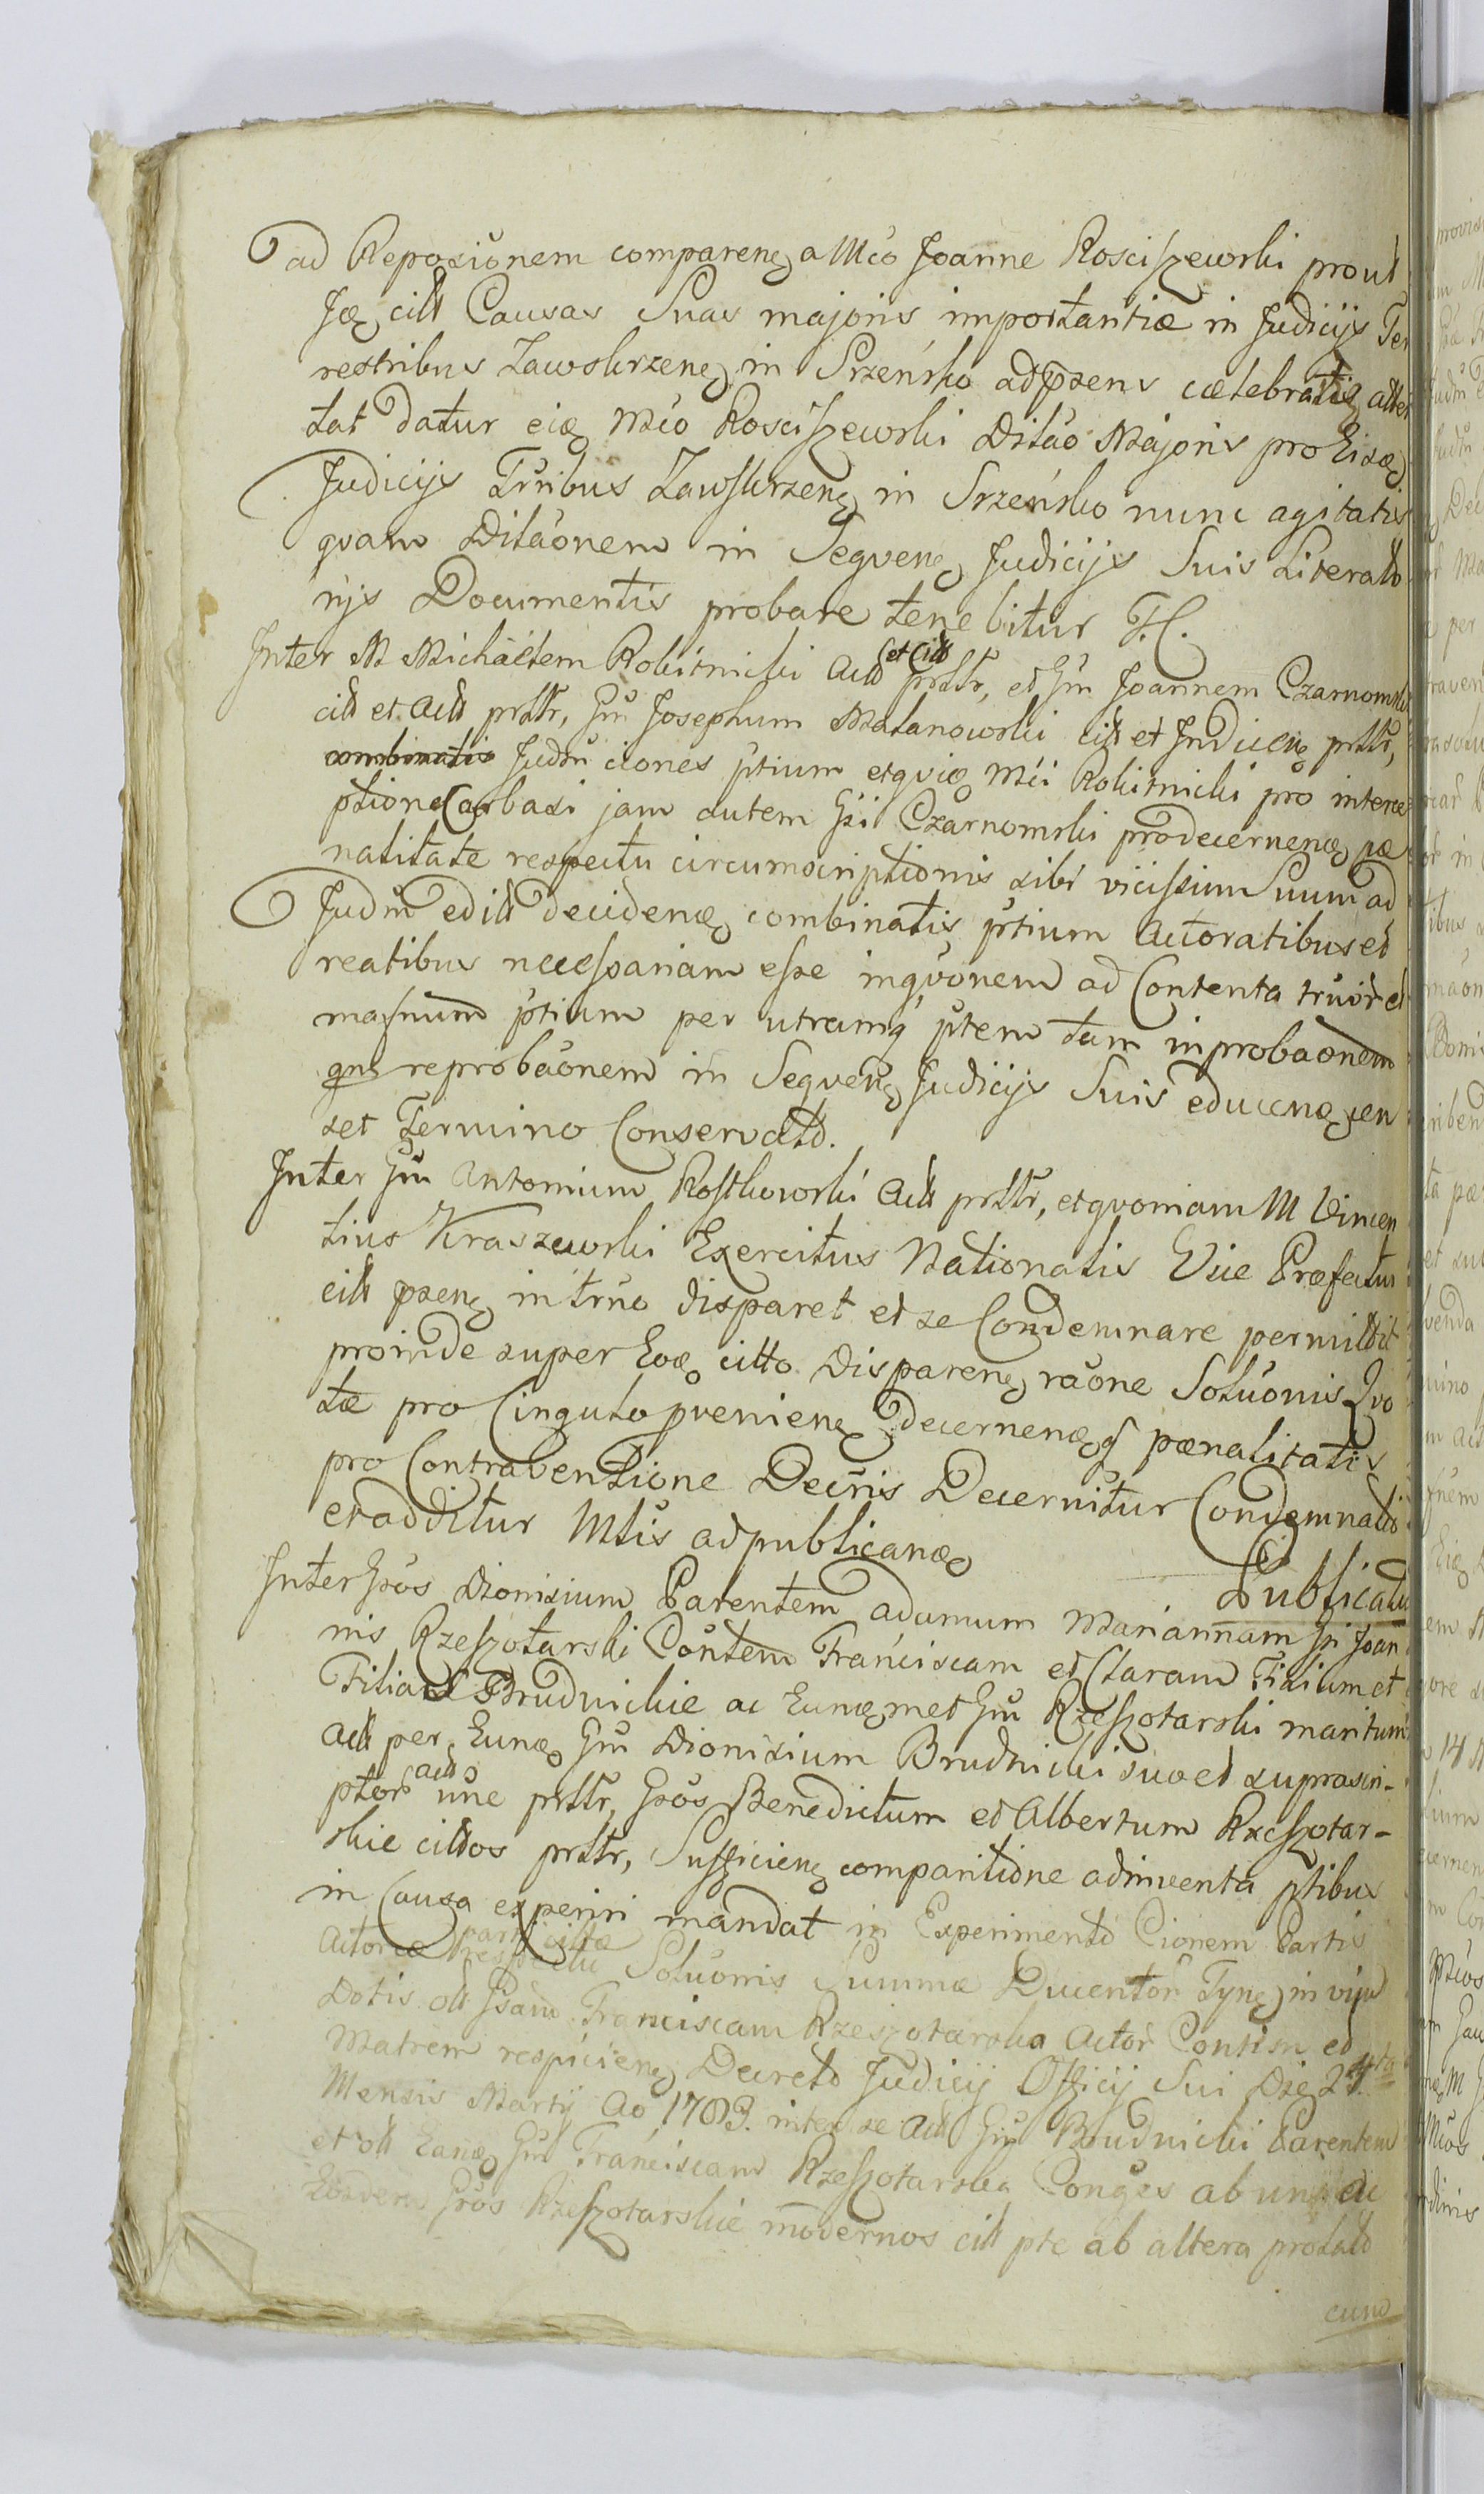 ad Repoxionem comparenę a Mco Joanne Rosciszewski prout
Jdę citt Causas Suas majoris importantiæ in Judicijs Ter
restribus Zawskrzenę in Srzeńsko adpræns cælebratis attes
tat datur eidę Mco Rosciszewski Dilâo Majoris pro Eisdę
Judicijs Trribus Zawskrzenę in Srzeńsko nunc agitatis
qvam Dilâonem in Seqvenę Judicijs Suis Literato
rijs Documentis probare tenebitur T. C.
Inter M Michaelem Rokitnicki Actt et Citt prtlr, et Gm Joannem Czarnomski
citt et Actt prtlr, Gm Josephum Malanowski citt et Indicenę prtlr,
combinatis Judm ciones ptium et qvia Mci Rokitnicki pro interce
ptione Carbasi jam autem Gsi Czarnomski pro decernenę pæ
nalitate respectu circumscriptionis sibi vicissim Suum ad
Judm edikt decidenę combinatis ptium Actoratibus et
reatibus necessariam esse inqvonem ad Contenta trûor et
masnum ptium per utramq ptem tam in probaonem
qm reprobâonem in Seqvenę Judicijs Suis educenę cen
set Termino Conservato.
Inter Gm Antonium Rostkowski Actt prtlr, et qvoniam M Vincen
tius Kraszewski Exercitus Nationalis Vice Præfectus
citt præns in trno disparet et se Condemnare permittit
proinde super Eoę citto Disparenę râone Solûonis Qvo
tæ pro Cingulo pvenienę Decernenęq pænalitatis
pro Contraventione Decris Decernitur Condemnatio
et additur Mtlis ad publicandę
Publicatu
Inter Gsos Dionisium Parentem Adamum Mariannam Gsi Joan
nis Rzeszotarski Contem Franciscam et Claram Filium et
Filias Brudnickie ac Eundęmet Gm Rzeszotarski maritum
Actt per Eundę Gm Dionisium Brudnicki suo et suprascri-
ptor actt nne prtlr, Gsos Benedictum et Albertum Rzeszotar-
skie cittos prtlr, Sufficienę comparitione adinventa ptibus
in Causa experiri mandat in Experimento Cionem Partis
Actoreæ parti cittæ respectu Solûonis Summæ Ducentor Tynę in vim
Dotis ott Gsam Franciscam Rzeszotarska Actor Contim et
Matrem respicienę Decreto Judicij Officij Sui Die 24ta
Mensis Martij Ao 1783. inter se Actt Gm Brudnicki Parentem
et ott Eandę Gm Franciscam Rzeszotarska Conges ab una ac
Eosdem Gsos Rzeszotarskie modernos citt pte ab altera prolato
cum